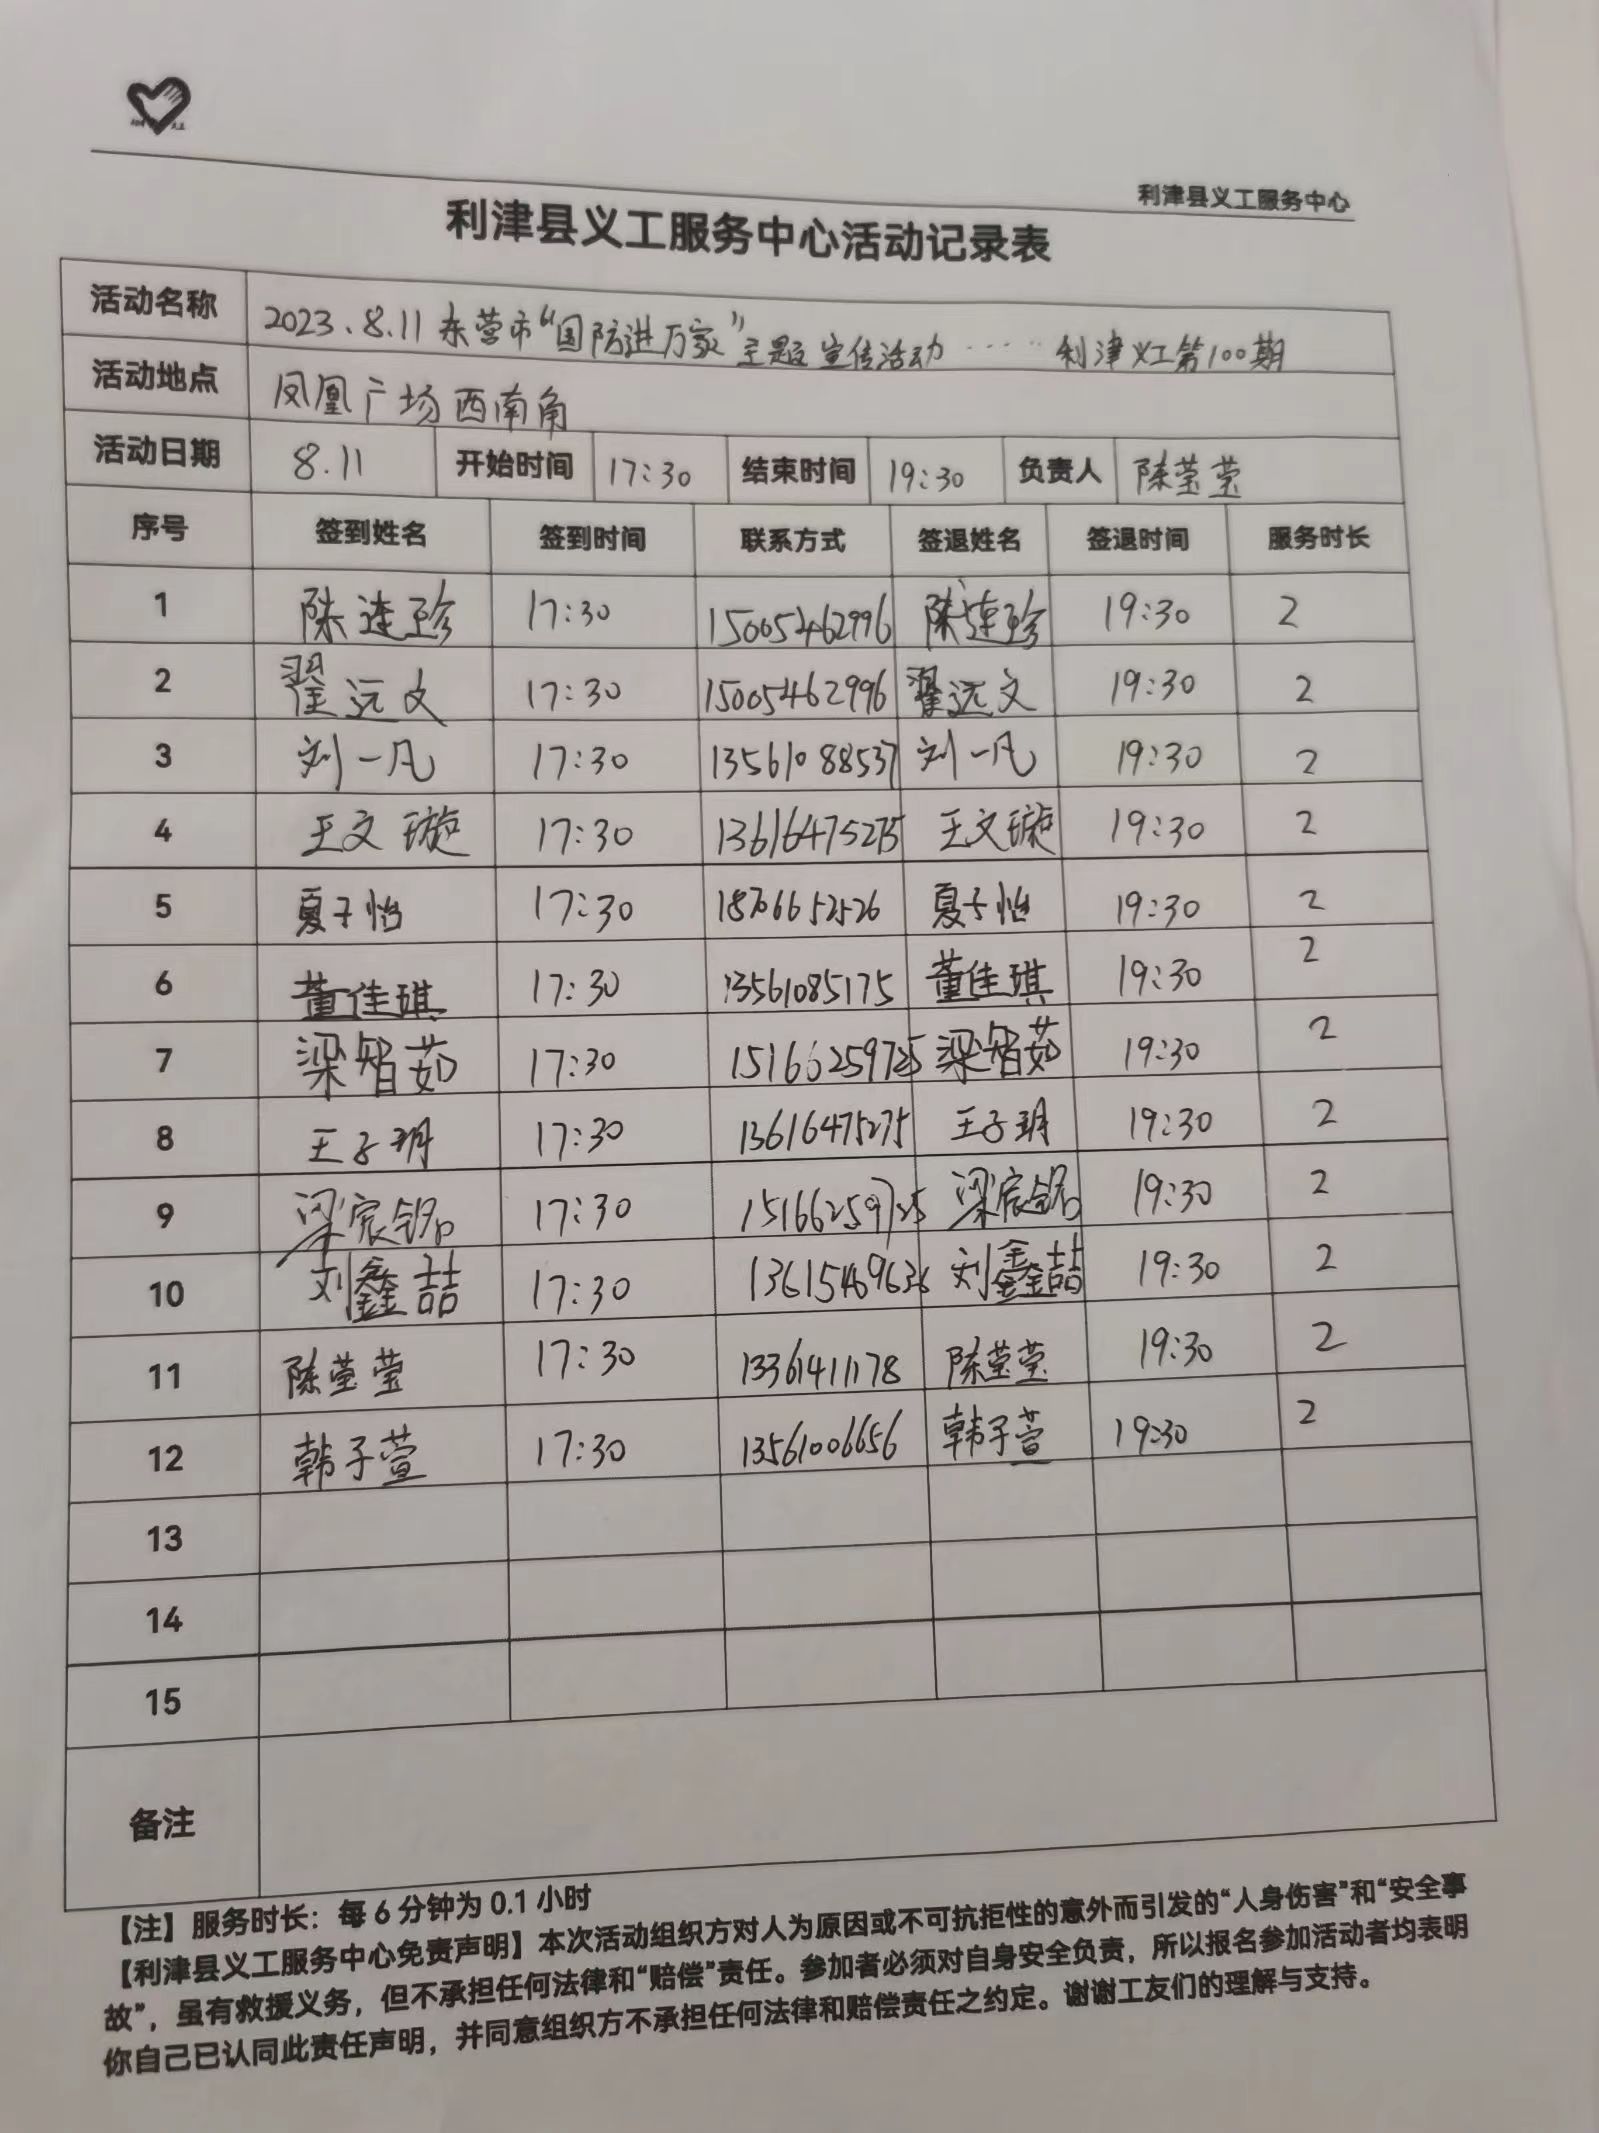 利津县义工服务中心
利津县义工服务中心活动记录表
活动名称 2023.8.11东营市“国防进万家”主题宣传活动……利津义工第100期
活动地点 凤凰广场西南角
活动日期 8.11 开始时间 17:30 结束时间 19:30 负责人 陈莹莹
序号 签到姓名 签到时间 联系方式 签退姓名 签退时间 服务时长
1 陈连珍 17:30 15005462996 陈连珍 19:30 2
2 翟远文 17:30 15005462996 翟远文 19:30 2
3 刘一凡 17:30 13561088537 刘一凡 19:30 2
4 王文璇 17:30 13616475275 王文璇 19:30 2
5 夏子怡 17:30 18766652526 夏子怡 19:30 2
6 董佳琪 17:30 13561085175 董佳琪 19:30 2
7 梁智茹 17:30 15166259725 梁智茹 19:30 2
8 王子玥 17:30 13616475275 王子玥 19:30 2
9 梁宸铭 17:30 15166259725 梁宸铭 19:30 2
10 刘鑫喆 17:30 13615469636 刘鑫喆 19:30 2
11 陈莹莹 17:30 13361411178 陈莹莹 19:30 2
12 韩子萱 17:30 13561006656 韩子萱 19:30 2
13
14
15
备注
【注】服务时长：每6分钟为0.1小时
【利津县义工服务中心免责声明】本次活动组织方对人为原因或不可抗拒性的意外而引发的“人身伤害”和“安全事
故”，虽有救援义务，但不承担任何法律和“赔偿”责任。参加者必须对自身安全负责，所以报名参加活动者均表明
你自己已认同此责任声明，并同意组织方不承担任何法律和赔偿责任之约定。谢谢工友们的理解与支持。